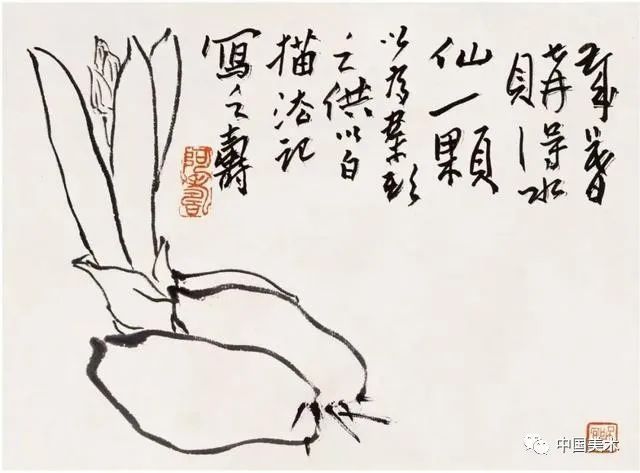 歲暮
購得水
仙一顆
以為案頭
之供以白
描法記
寫之壽
阿壽
中国美术